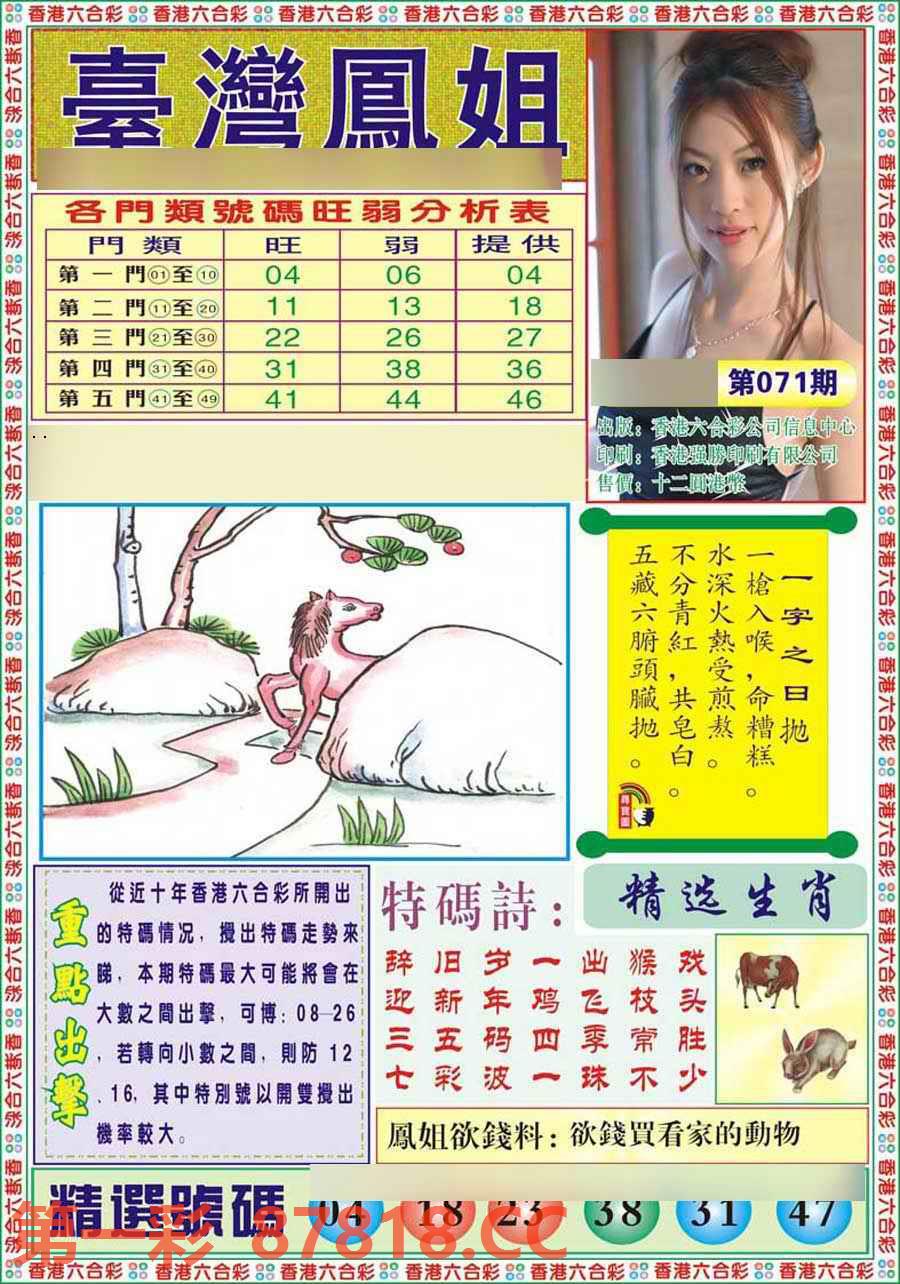 香港六合彩 香港六合彩 香港六合彩 香港六合彩 香港六合彩 香港六合彩
臺灣鳳姐
各門類號碼旺弱分析表
門類 旺 弱 提供
第一門01至10 04 06 04
第二門11至20 11 13 18
第三門21至30 22 26 27
第四門31至40 31 38 36
第五門41至49 41 44 46
第071期
出版：香港六合彩公司信息中心
印刷：香港强勝印刷有限公司
售價：十二圓港幣
一字之曰拋
一槍入喉，命糟糕。
水深火熱受煎熬。
不分青紅，共皂白。
五藏六腑頭臟拋。
尋寶圖
重點出擊
從近十年香港六合彩所開出
的特碼情况，攪出特碼走勢來
睇，本期特碼最大可能將會在
大數之間出擊，可博：08—26
，若轉向小數之間，則防 12
、16，其中特別號以開雙攪出
機率較大。
特碼詩：
辞旧岁一出猴戏
迎新年鸡飞枝头
三五码四季常胜
七彩波一珠不少
精选生肖
鳳姐欲錢料：欲錢買看家的動物
精選號碼 04 18 23 38 31 47
第一彩 87818.CC
香港六合彩 香港六合彩 香港六合彩 香港六合彩 香港六合彩 香港六合彩